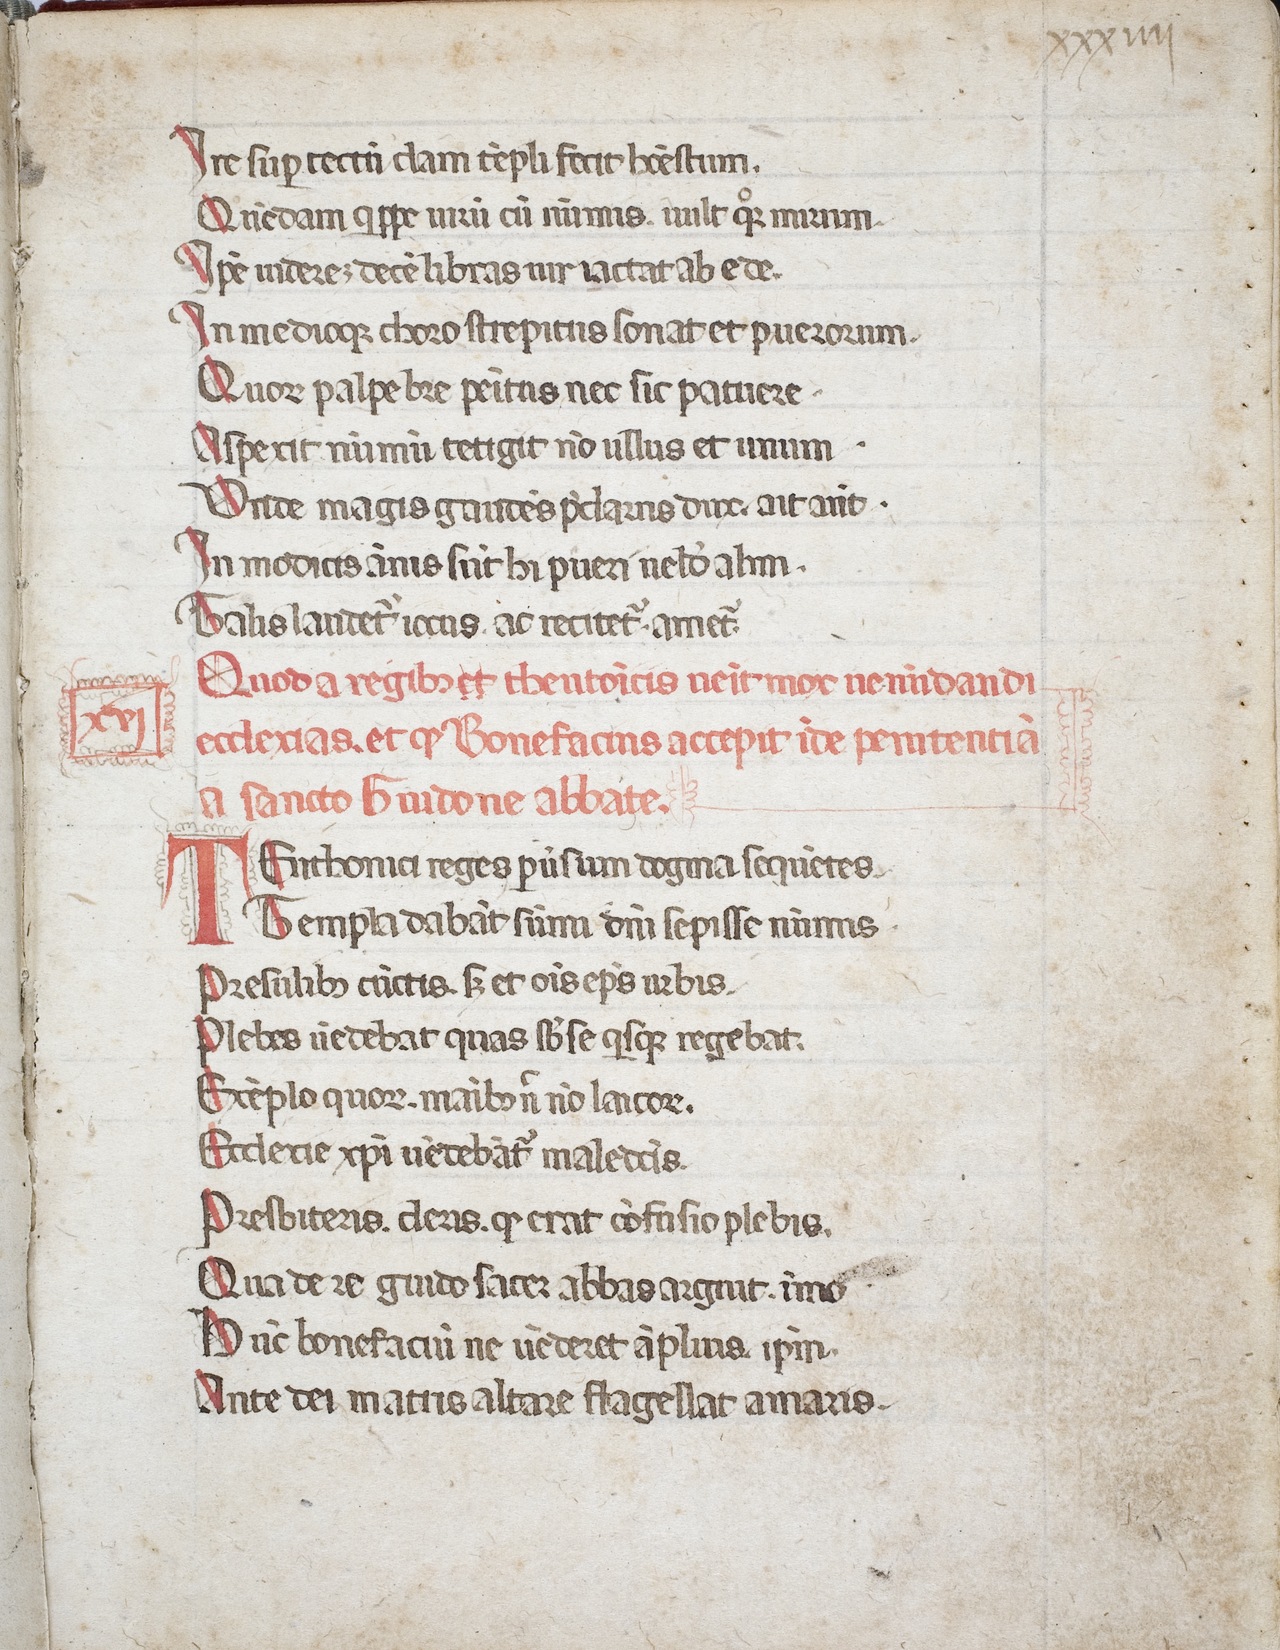 xxxiiij
Ire sup tectũ clam tẽpli fecit hõestum.
Quẽdam qippe uirũ cũ nũmis. uult qͦꝝ mirum.
Ipẽ uidere; decẽ libras uir iactat ab ede.
In medioqꝫ choro strepitus sonat et puerorum.
Quoꝝ palpebre pẽitus nec sic patuere.
Aspexit nũmũ tetigit nõ ullus et unum.
Vnde magis gaudẽs p̃clarus dux. ait
In modicis ãnis sũt hi pueri uelᷣ almi.
Talis laudet᷑ iccus. ac recitet᷑. amet᷑
xvi
Quod a regibꝫ theutoĩcis ueĩt mox uenũdandi
ecclexias. et ꝙ Bonefacius accepit ĩde penitentiã
a sancto Guidone abbate.
TEuthonici reges puũsum dogma sequẽtes.
Templa dabãt sũmi dñi sepisse nũmis.
Presulibꝫ cũctis. sꝫ et oĩs ep̃s urbis.
Plebes uẽdebat quas sᷣb se qisqꝫ regebat.
Exẽplo quoꝝ. maĩbꝫ ñ nõ laicoꝝ.
Ecclexie xp̃i uẽdebãt᷑ maledcĩs.
Presbiteris. cleris. ꝙ erat cõfusio plebis.
Qua de re guido sacer abbas arguit. ĩmo
Hũc bonefaciũ ne uẽderet ãplius. ipm̃.
Ante dei matris altare flagellat amaris.